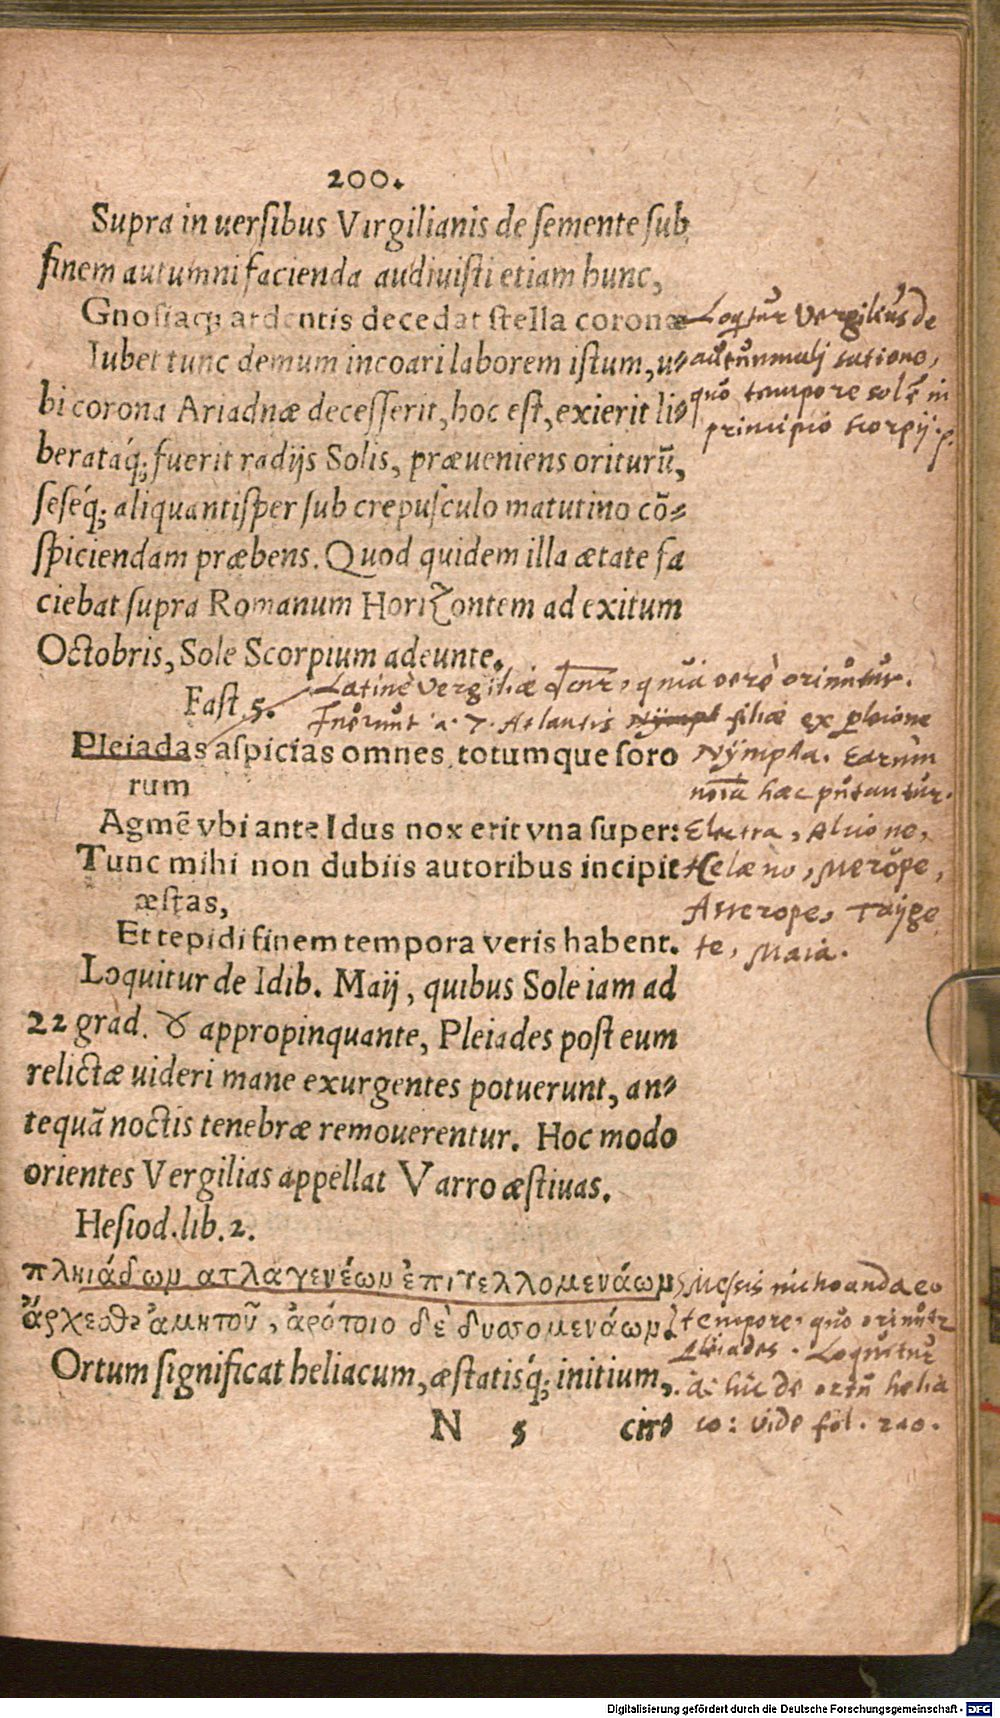 200.
Supra in uersibus Virgilianis de semente sub
finem autumni facienda audiuisti etiam hunc,
Gnosiaq; ardentis decedat stella coronæ
Loqtur Vergilius de
Iubet tunc demum incoari laborem istum, u-
autumnali satione,
bi corona Ariadnæ decesserit, hoc est, exierit li-
quo tempore sol ē in
principio scorpij.
berataq́; fuerit radijs Solis, præueniens oriturū,
seseq́; aliquantisper sub crepusculo matutino cō-
spiciendam præbens. Quod quidem illa ætate fa
ciebat supra Romanum Horizontem ad exitum
Octobris, Sole Scorpium adeunte.
Latinè Vergiliæ quia verè oriuntur.
Fast 5.
Fuerunt 7. Atlantis Nympl filiæ ex pleione
Pleiadas aspicias omnes totumque soro
Nÿmpha. Earum
rum
noīa hæc putantur.
Agmē vbi ante Idus nox erit vna super:
Electra, Alcione,
Tunc mihi non dubiis autoribus incipit
Celæno, Merope,
æstas,
Asterope, Taÿge
Et tepidi finem tempora veris habent.
te, Maia.
Loquitur de Idib. Maij, quibus Sole iam ad
22 grad. ♉ appropinquante, Pleiades post eum
relictæ uideri mane exurgentes potuerunt, an-
tequā noctis tenebræ remouerentur. Hoc modo
orientes Vergilias appellat Varro æstiuas.
Hesiod. lib. 2.
πληιάδων ατλαγενέων ἐπιτελλομενάων
Messis inchoanda eo
ἄρχεσθ' ἀμητοῦ, ἀρότοιο δὲ δυσσομενάων.
tempore, quo oriuntr
pleiades. Loquitur
Ortum significat heliacum, æstatisq́; initium,
hic de ortu helia
N 5 cir-
co: vide fol. 200.
Digitalisierung gefördert durch die Deutsche Forschungsgemeinschaft - DFG